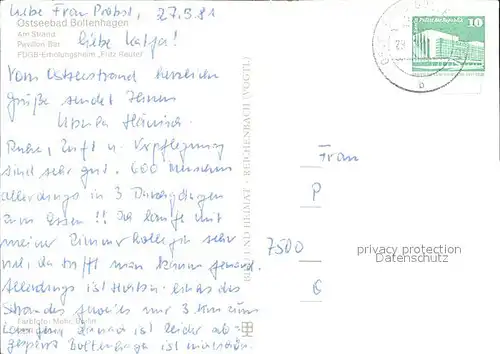 Liebe Frau Probst, 27.5.81
Ostseebad Boltenhagen
Am Strand
Liebe Katja!
Pavillon-Bar
FDGB-Erholungsheim „Fritz Reuter"
Vom Ostseestrand herzliche
Grüße sendet Ihnen
Ursula
Ruhe, Luft u. Verpflegung
sind sehr gut. 600 Menschen
allerdings in 3 Durchgängen
zum Essen!! Ich laufe mit
meiner Zimmerkollegin sehr
viel, da trifft man kaum jemand.
Allerdings ist
Strandes jeweils nur 3 km zum
ist leider ab-
gesperrt Boltenhagen ist
Farbfoto: Mohr, Berlin
BILD UND HEIMAT REICHENBACH (VOGTL)
10
b
Frau
P
7500
C
privacy protection
Datenschutz